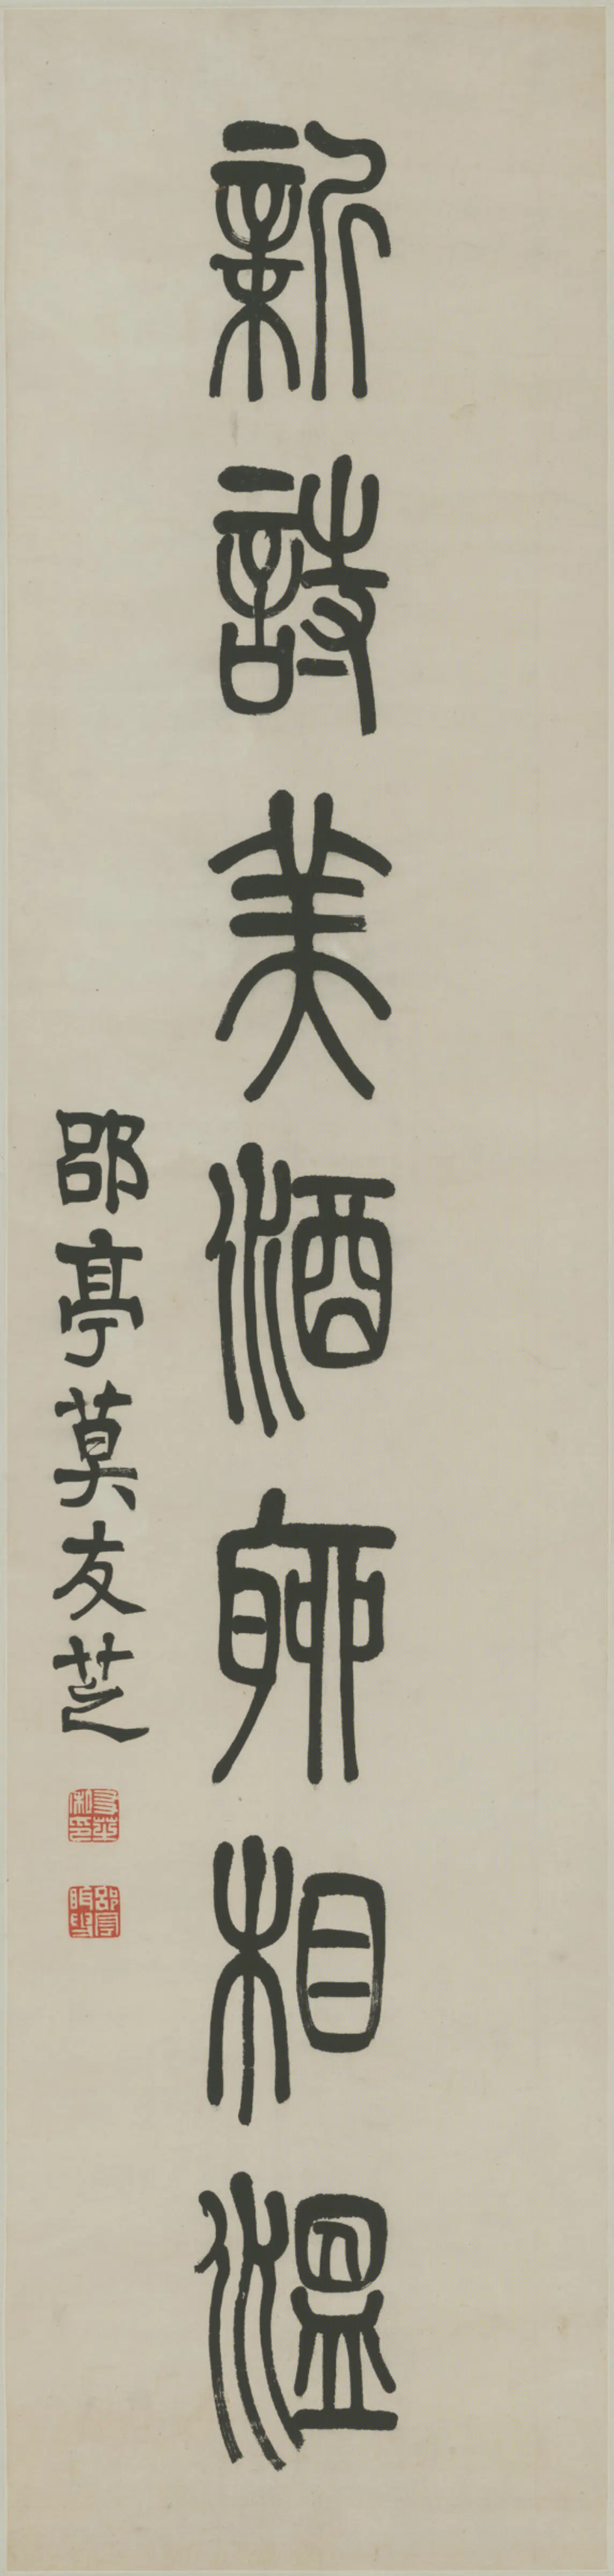 新詩美酒聊相溫
郘亭莫友芝